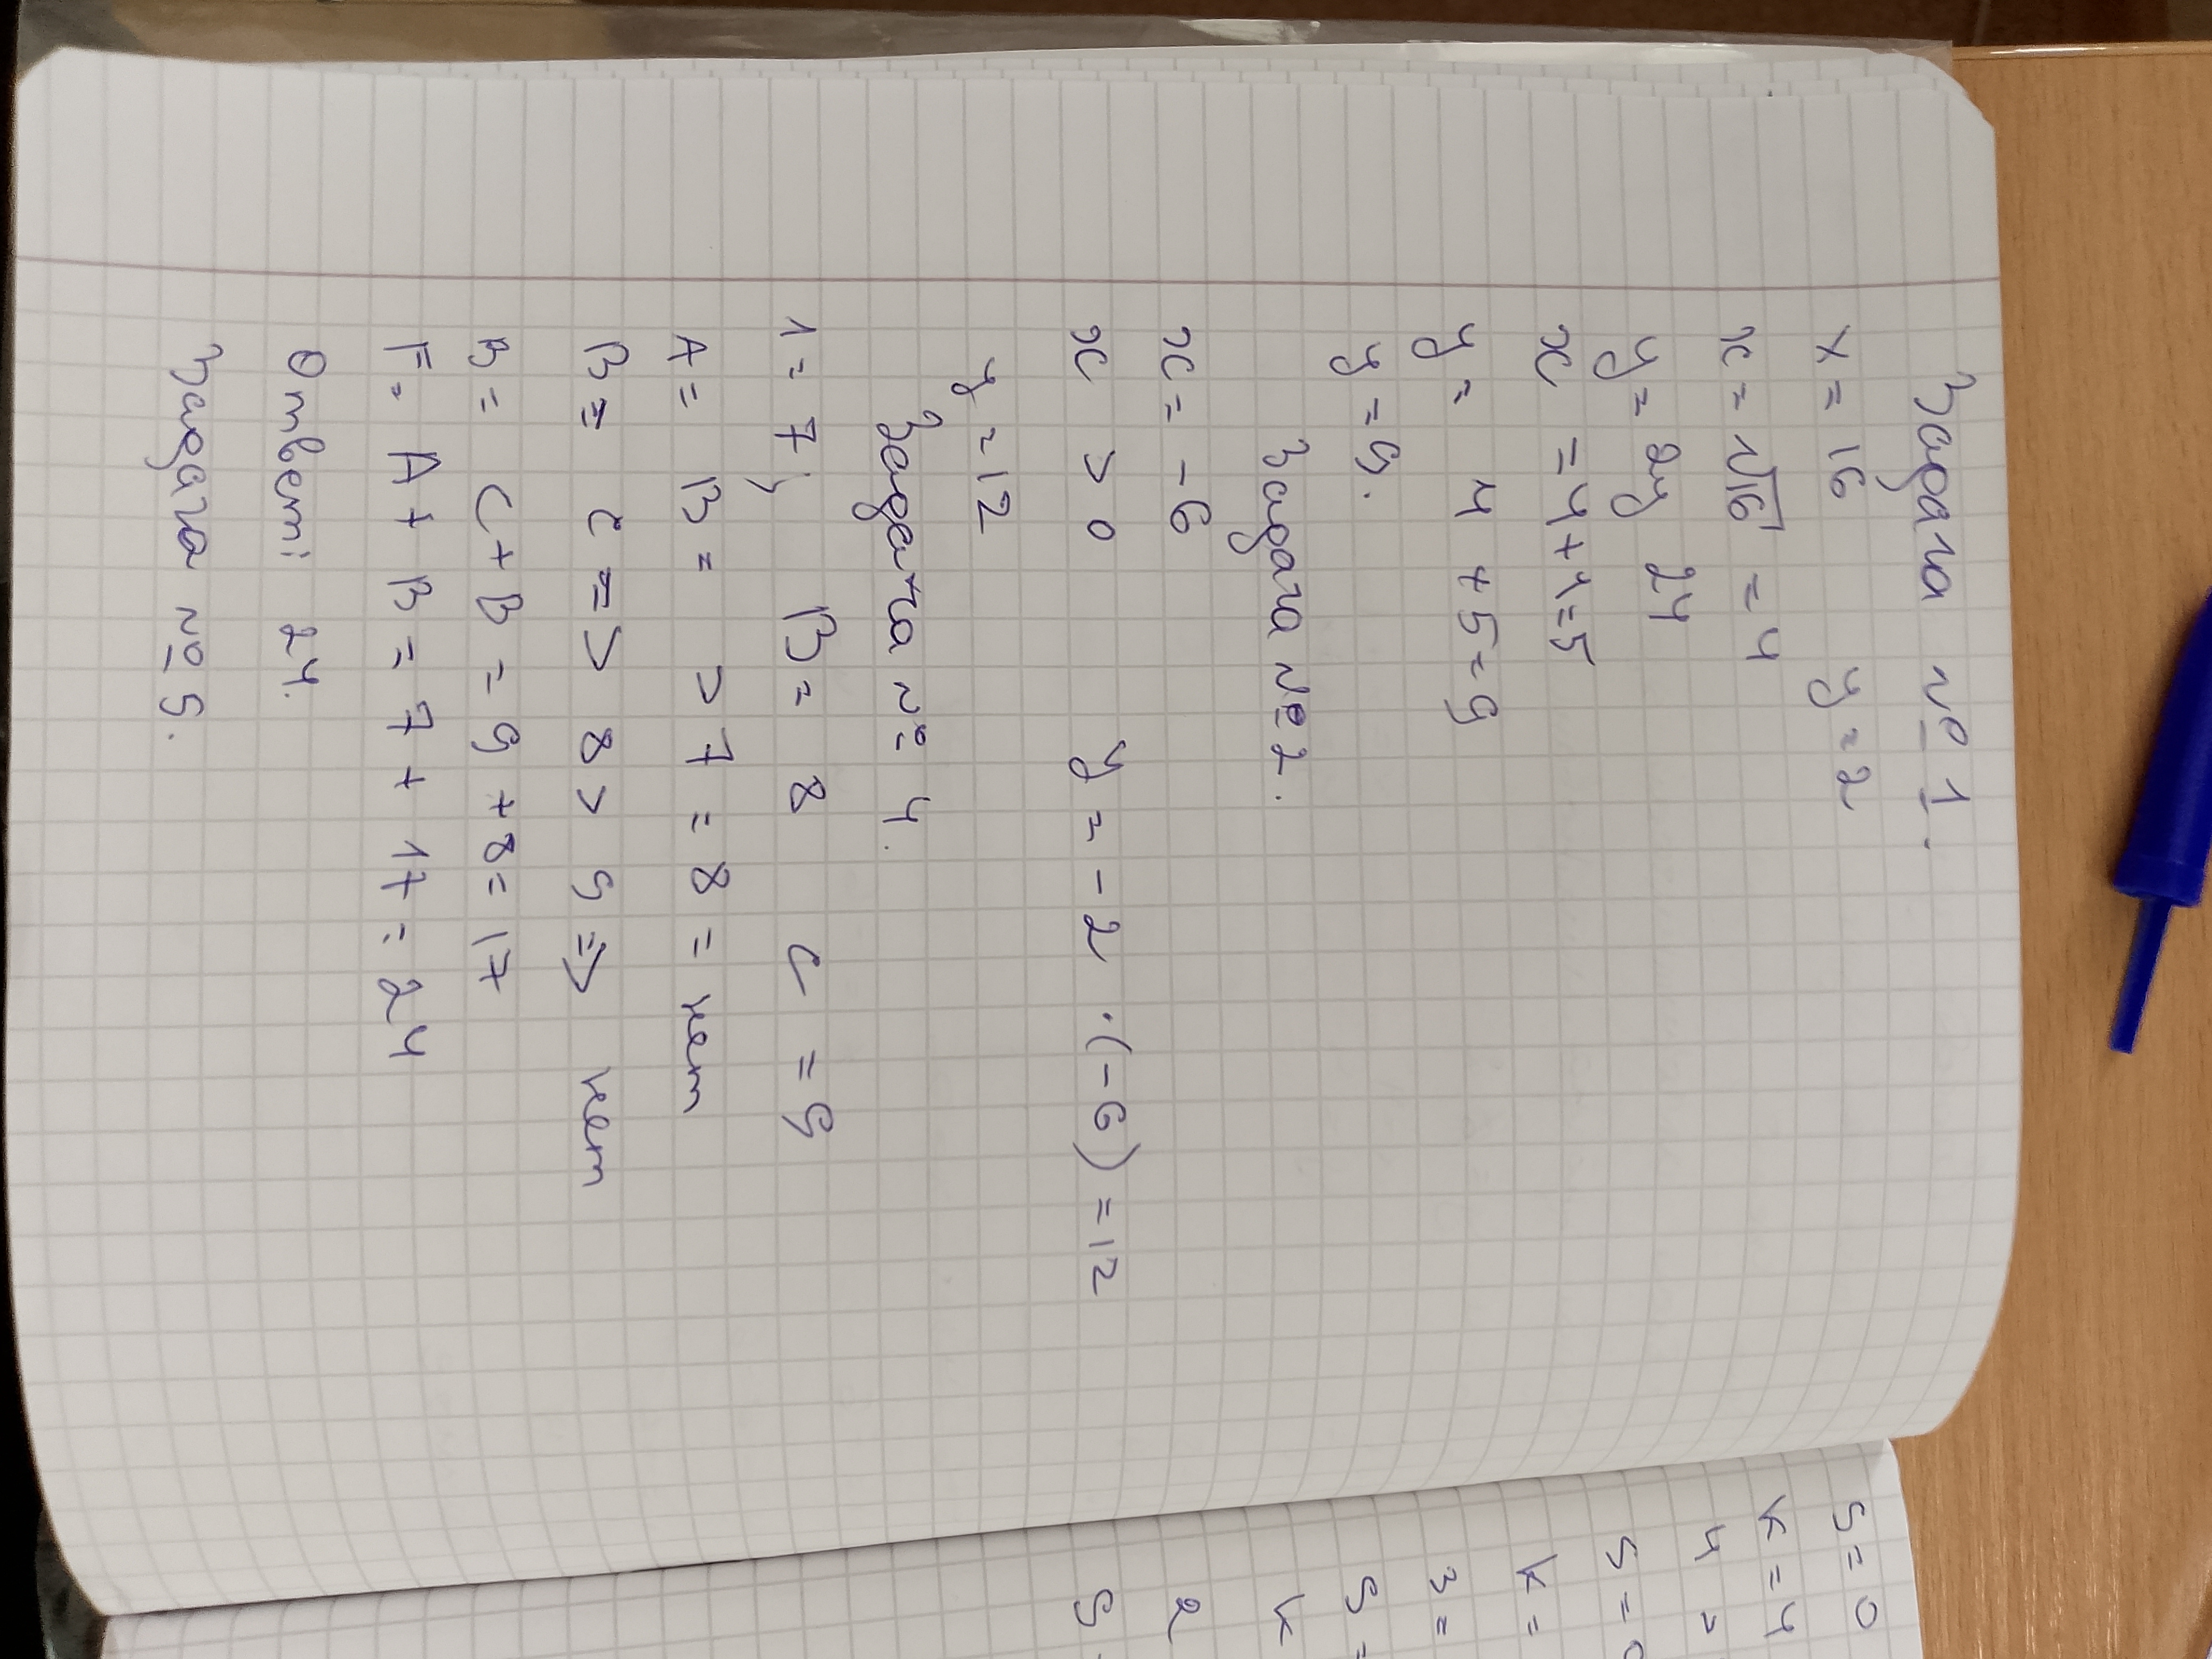 Задача № 1.
x = 16 y = 2
x = √16 = 4
y = 2y 24
x = 4 + 1 = 5
y = 4 + 5 = 9
y = 9.
Задача № 2.
x = -6
x > 0 y = -2 · (-6) = 12
y = 12
Задача № 4.
1 = 7; B = 8 C = 9
A = B = > 7 = 8 = нет
B = C => 8 > 9 => нет
B = C + B = 9 + 8 = 17
F = A + B = 7 + 17 = 24
Ответ: 24.
Задача № 5.
S = 0
K = 4
4 =
S = 9
K =
3 =
S =
K
2
S